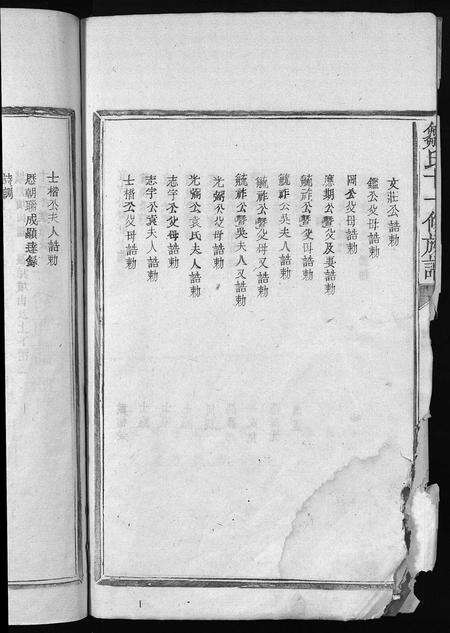 氏十一修族譜
文莊公誥勅
鑑公父母誥勅
岡公父母誥勅
應期公暨父及妻誥勅
毓祚公暨父母誥勅
毓祚公吳夫人誥勅
毓祚公暨父母又誥勅
毓祚公暨吳夫人又誥勅
光弼公父母誥勅
光弼公袁氏夫人誥勅
志宇公父母誥勅
志宇公袁夫人誥勅
士楷公父母誥勅
士楷公夫人誥勅
歷朝科成顯達錄